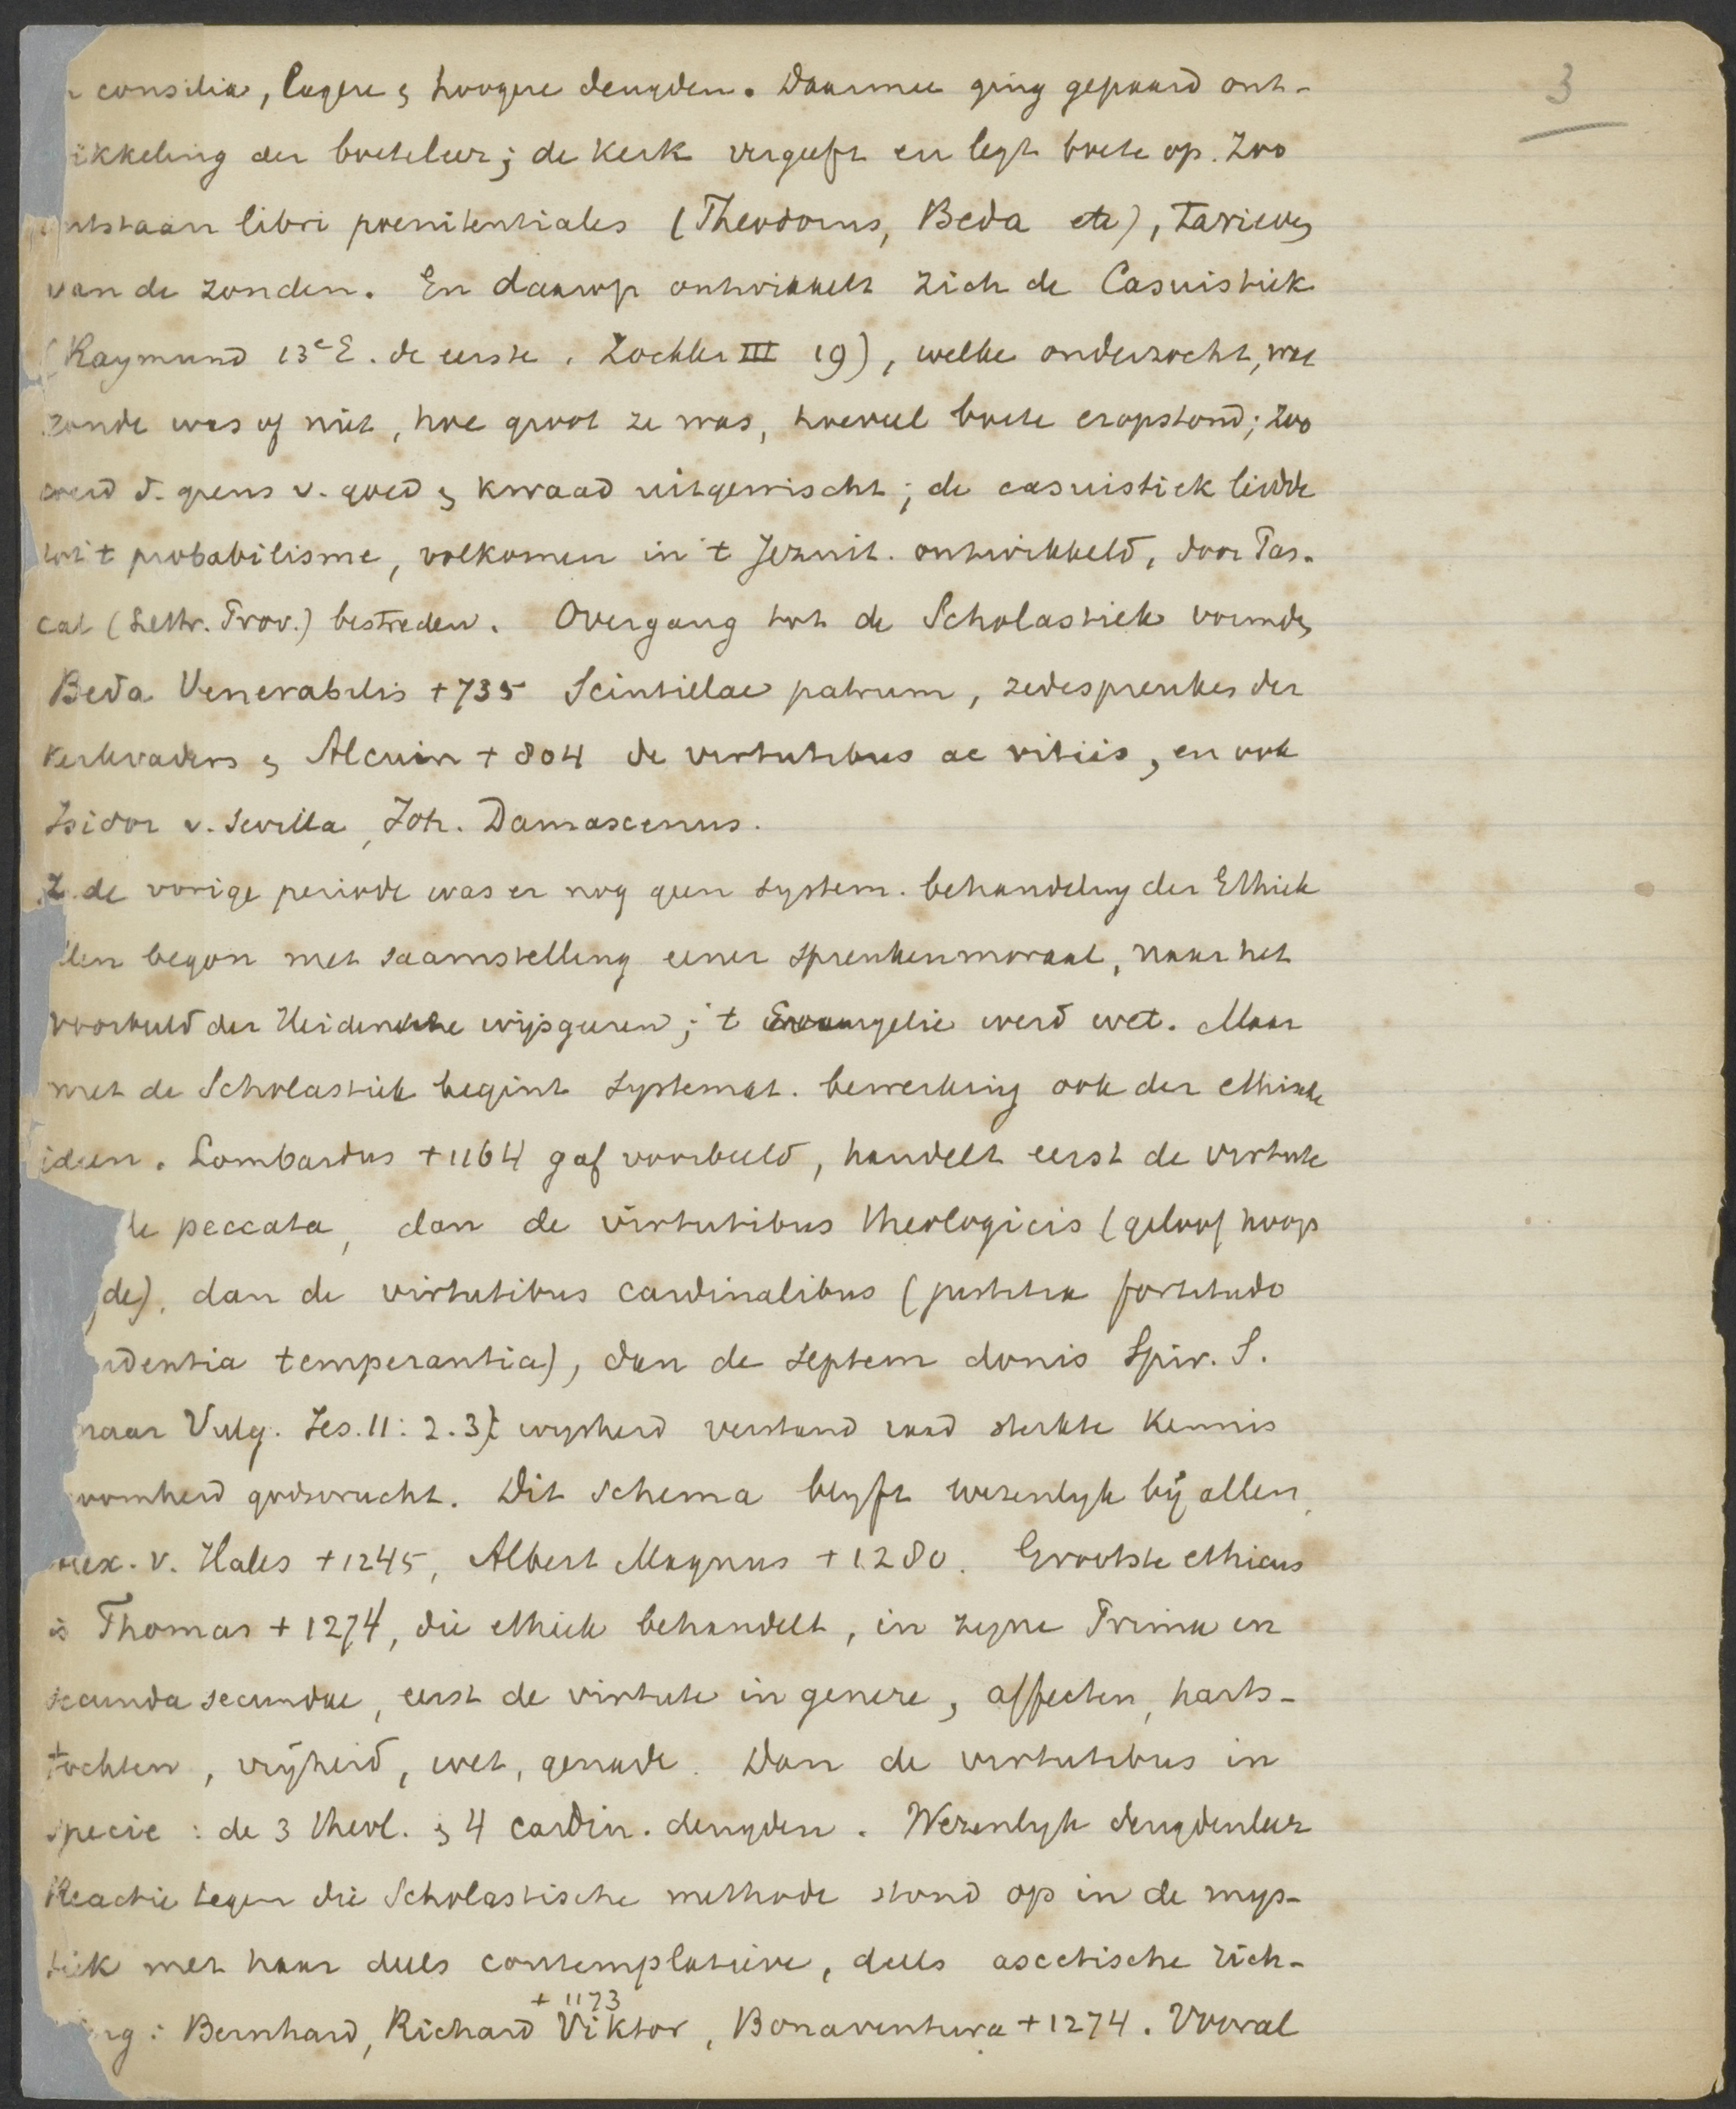 3
consilia, lagere & hoogere deugden. Daarmee ging gepaard ont-
ikkeling der boeteleer; de Kerk vergeeft en legt boete op. Zoo
ntstaan libri poenitentiales (Theodorus, Beda etc), tarieven
van de zonden. En daarop ontwikkelt zich de Casuistiek
(Raymund 13e E. de eerste. Zöckler III 19), welke onderzocht, wat
zonde was of niet, hoe groot ze was, hoeveel boete eropstond; zoo
werd d. grens v. goed & kwaad uitgewischt; de casuistiek leidde
tot 't probabilisme, volkomen in 't Jezuit. ontwikkeld, door Pas-
cal (Lettr. Prov.) bestreden. Overgang tot de Scholastiek vormden
Beda Venerabilis +735 Scintillae patrum, zedespreuken der
Kerkvaders & Alcuin + 804 de virtutibus ac vitiis, en ook
Isidor v. Sevilla, Joh. Damascenus.
2. de vorige periode was er nog geen system. behandeling der Ethiek
len begon met saamstelling eener spreukenmoraal, naar het
voorbeeld der Heidensche wijsgeeren; 't Evangelie werd wet. Maar
met de Scholastiek begint systemat. bewerking ook der ethische
ideen. Lombardus +1164 gaf voorbeeld, handelt eerst de virtute
de peccata, dan de virtutibus theologicis (geloof hoop
de), dan de virtutibus cardinalibus (justitia fortitudo
udentia temperantia), dan de septem donis Spir. S.
naar Vulg. Jes. 11: 2.3) wysheid verstand raad sterkte Kennis
roomheid godsvrucht. Dit schema blyft wezenlyk bij allen,
lex. v. Hales +1245, Albert Magnus +1280. Grootste ethicus
is Thomas +1274, die ethiek behandelt, in zyne Prima en
secunda secundae, eerst de virtute in genere, affecten, harts-
tochten, vrijheid, wet, genade. Dan de virtutibus in
specie : de 3 theol. & 4 cardin. deugden. Wezenlyk deugdenleer
Reactie tegen die Scholastische methode stond op in de mys-
tiek met haar deels contemplatieve, deels ascetische rich-
ing : Bernhard, Richard Viktor +1173, Bonaventura +1274. Vooral